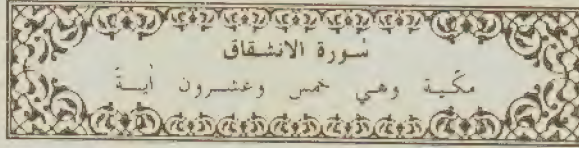 سورة الانشقاق
مكّية وهي خمس وعشرون أيسة